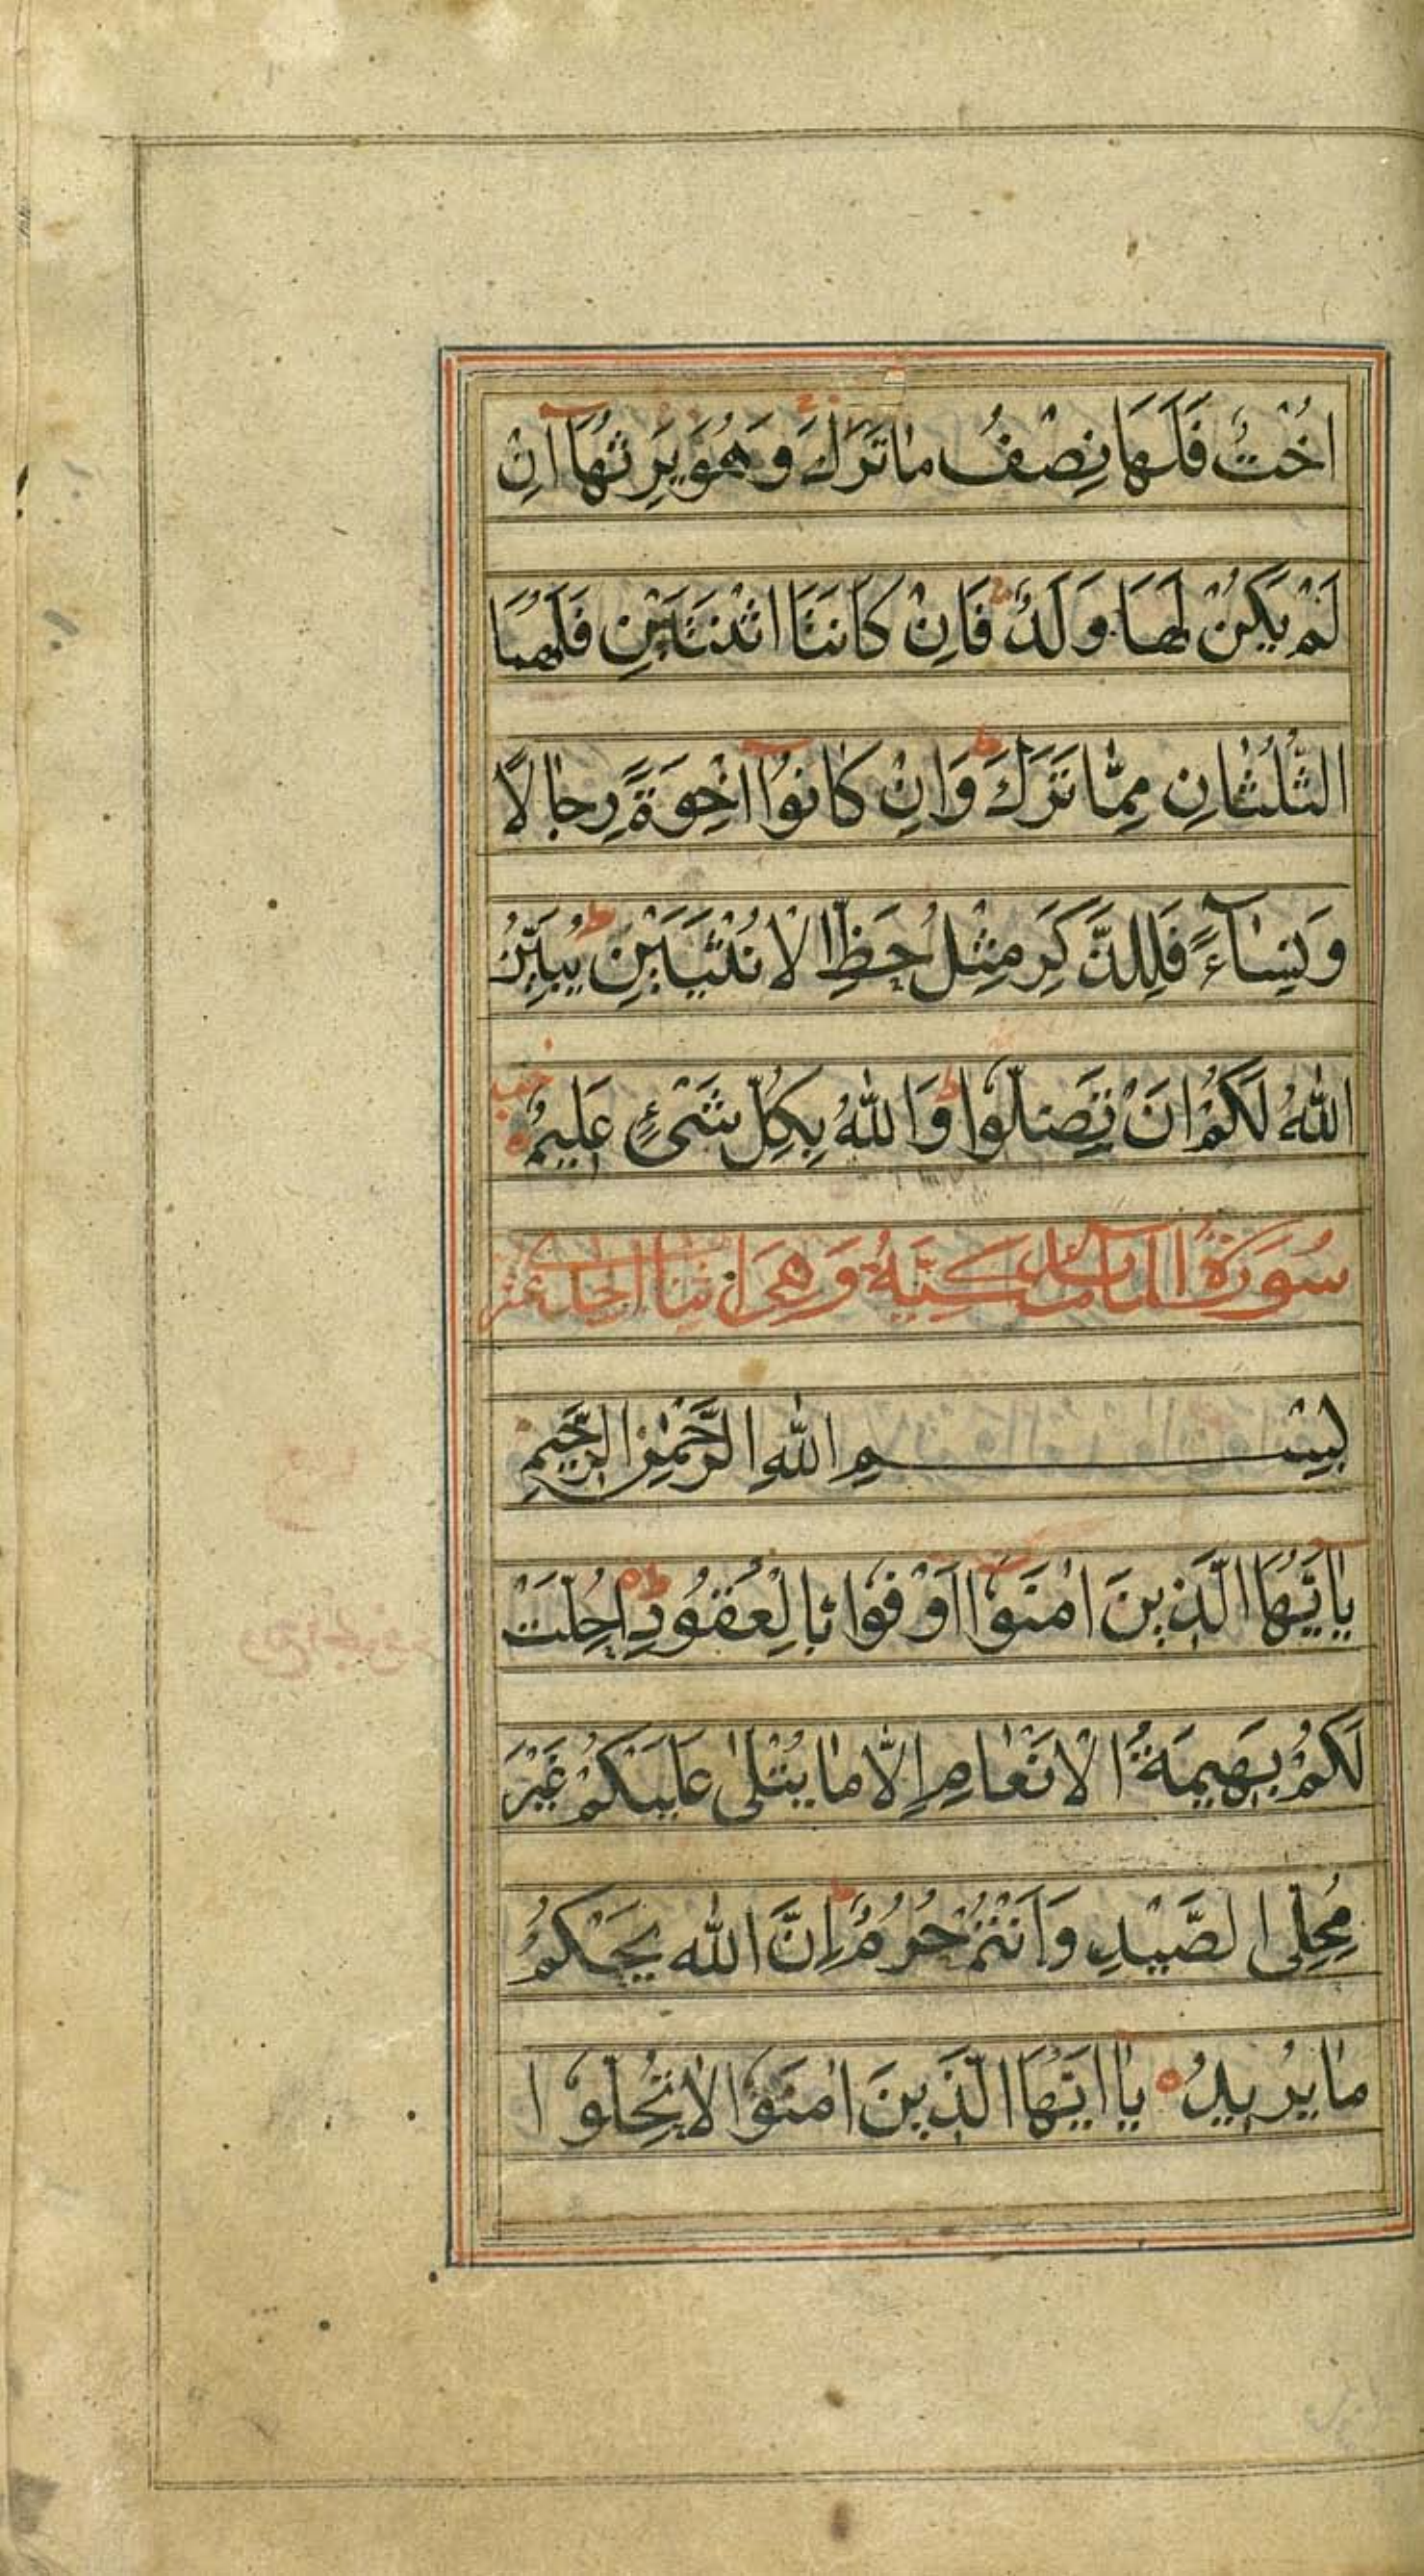 اُخْتٌ فَلَهَا نِصْفُ مَا تَرَكَ وَهُوَ يَرِثُهَآ اِنْ
لَمْ يَكُنْ لَهَا وَلَدٌ فَاِنْ كَانَتَا اثْنَتَيْنِ فَلَهُمَا
الثُّلُثَانِ مِمَّا تَرَكَ ط وَاِنْ كَانُوْآ اِخْوَةً رِجَالًا
وَنِسَآءً فَلِلذَّكَرِ مِثْلُ حَظِّ الْاُنْثَيَيْنِ ط يُبَيِّنُ
اللّٰهُ لَكُمْ اَنْ تَضِلُّوا ط وَاللّٰهُ بِكُلِّ شَىْءٍ عَلِيْمٌ ه
سُوْرَةُ الْمَائِدَة وَهِىَ
بِسْمِ اللّٰهِ الرَّحْمٰنِ الرَّحِيْمِ
يٰٓاَيُّهَا الَّذِيْنَ اٰمَنُوْآ اَوْفُوْا بِالْعُقُوْدِ ط ه اُحِلَّتْ
لَكُمْ بَهِيْمَةُ الْاَنْعَامِ اِلَّا مَا يُتْلٰى عَلَيْكُمْ غَيْرَ
مُحِلِّى الصَّيْدِ وَاَنْتُمْ حُرُمٌ ط اِنَّ اللّٰه يَحْكُمُ
مَا يُرِيْدُ ه يٰا اَيُّهَا الَّذِيْنَ اٰمَنُوْا لَا تُحِلُّوْا